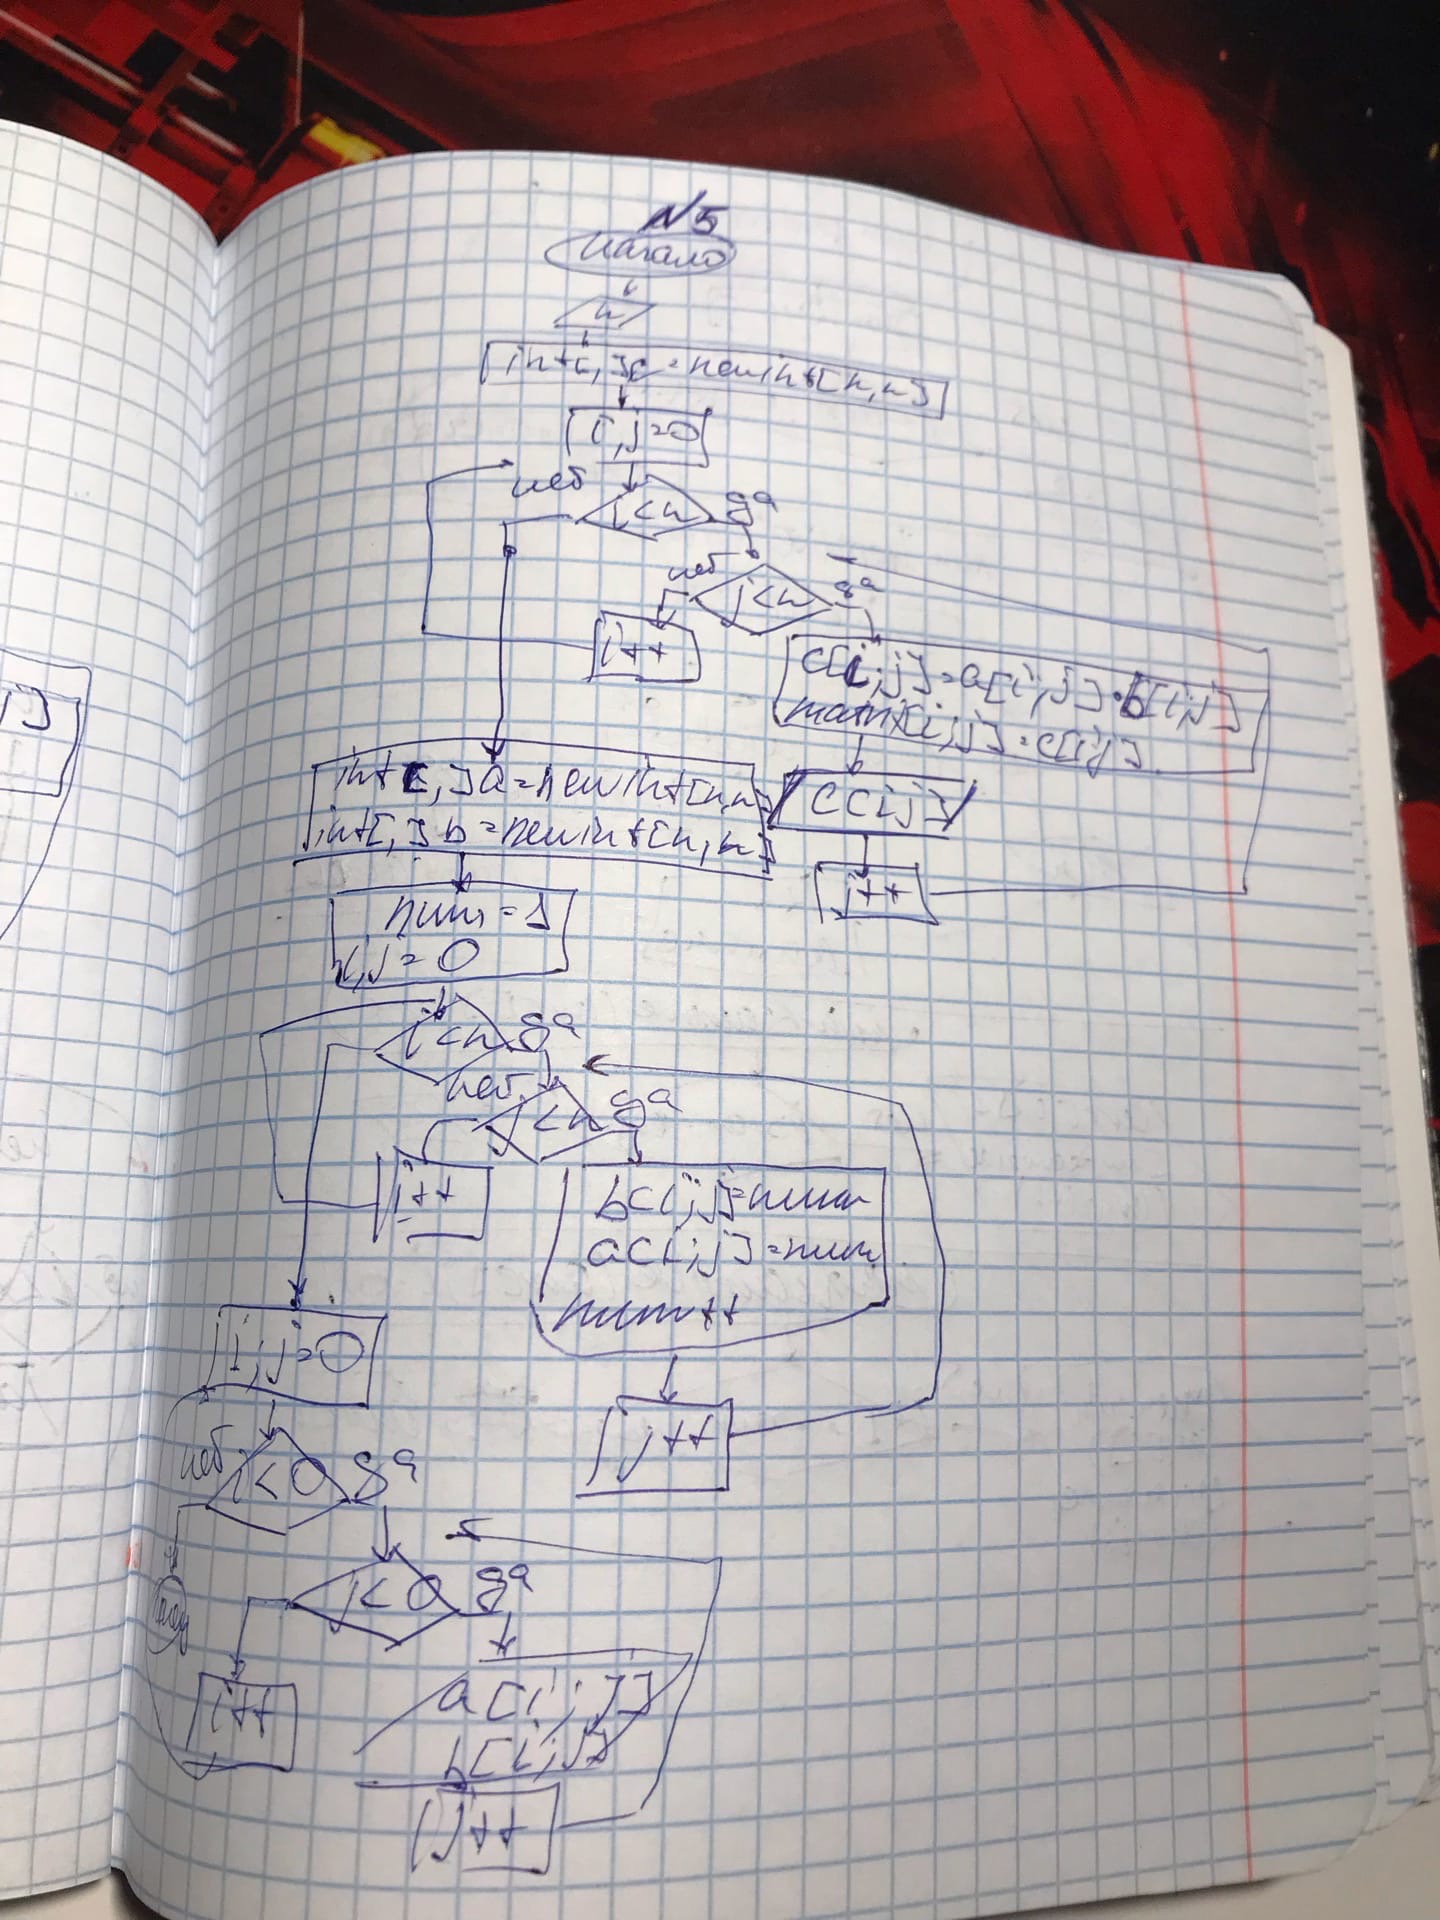 N5
Начало
n
int[,]c=new int[n,n]
i,j=0
нет
i<n
да
нет
j<n
да
i++
c[i;j]=a[i;j]·b[i;j]
matrix[i;j]=c[i;j]
int[,]a=new int[n,n]
int[,]b=new int[n,n]
c[i;j]
j++
num=1
i,j=0
i<n
да
нет
j<n
да
i++
b[i;j]=num
a[i;j]=num
num++
i;j=0
j++
нет
i<0
да
j<0
да
i++
a[i;j]
b[i;j]
j++